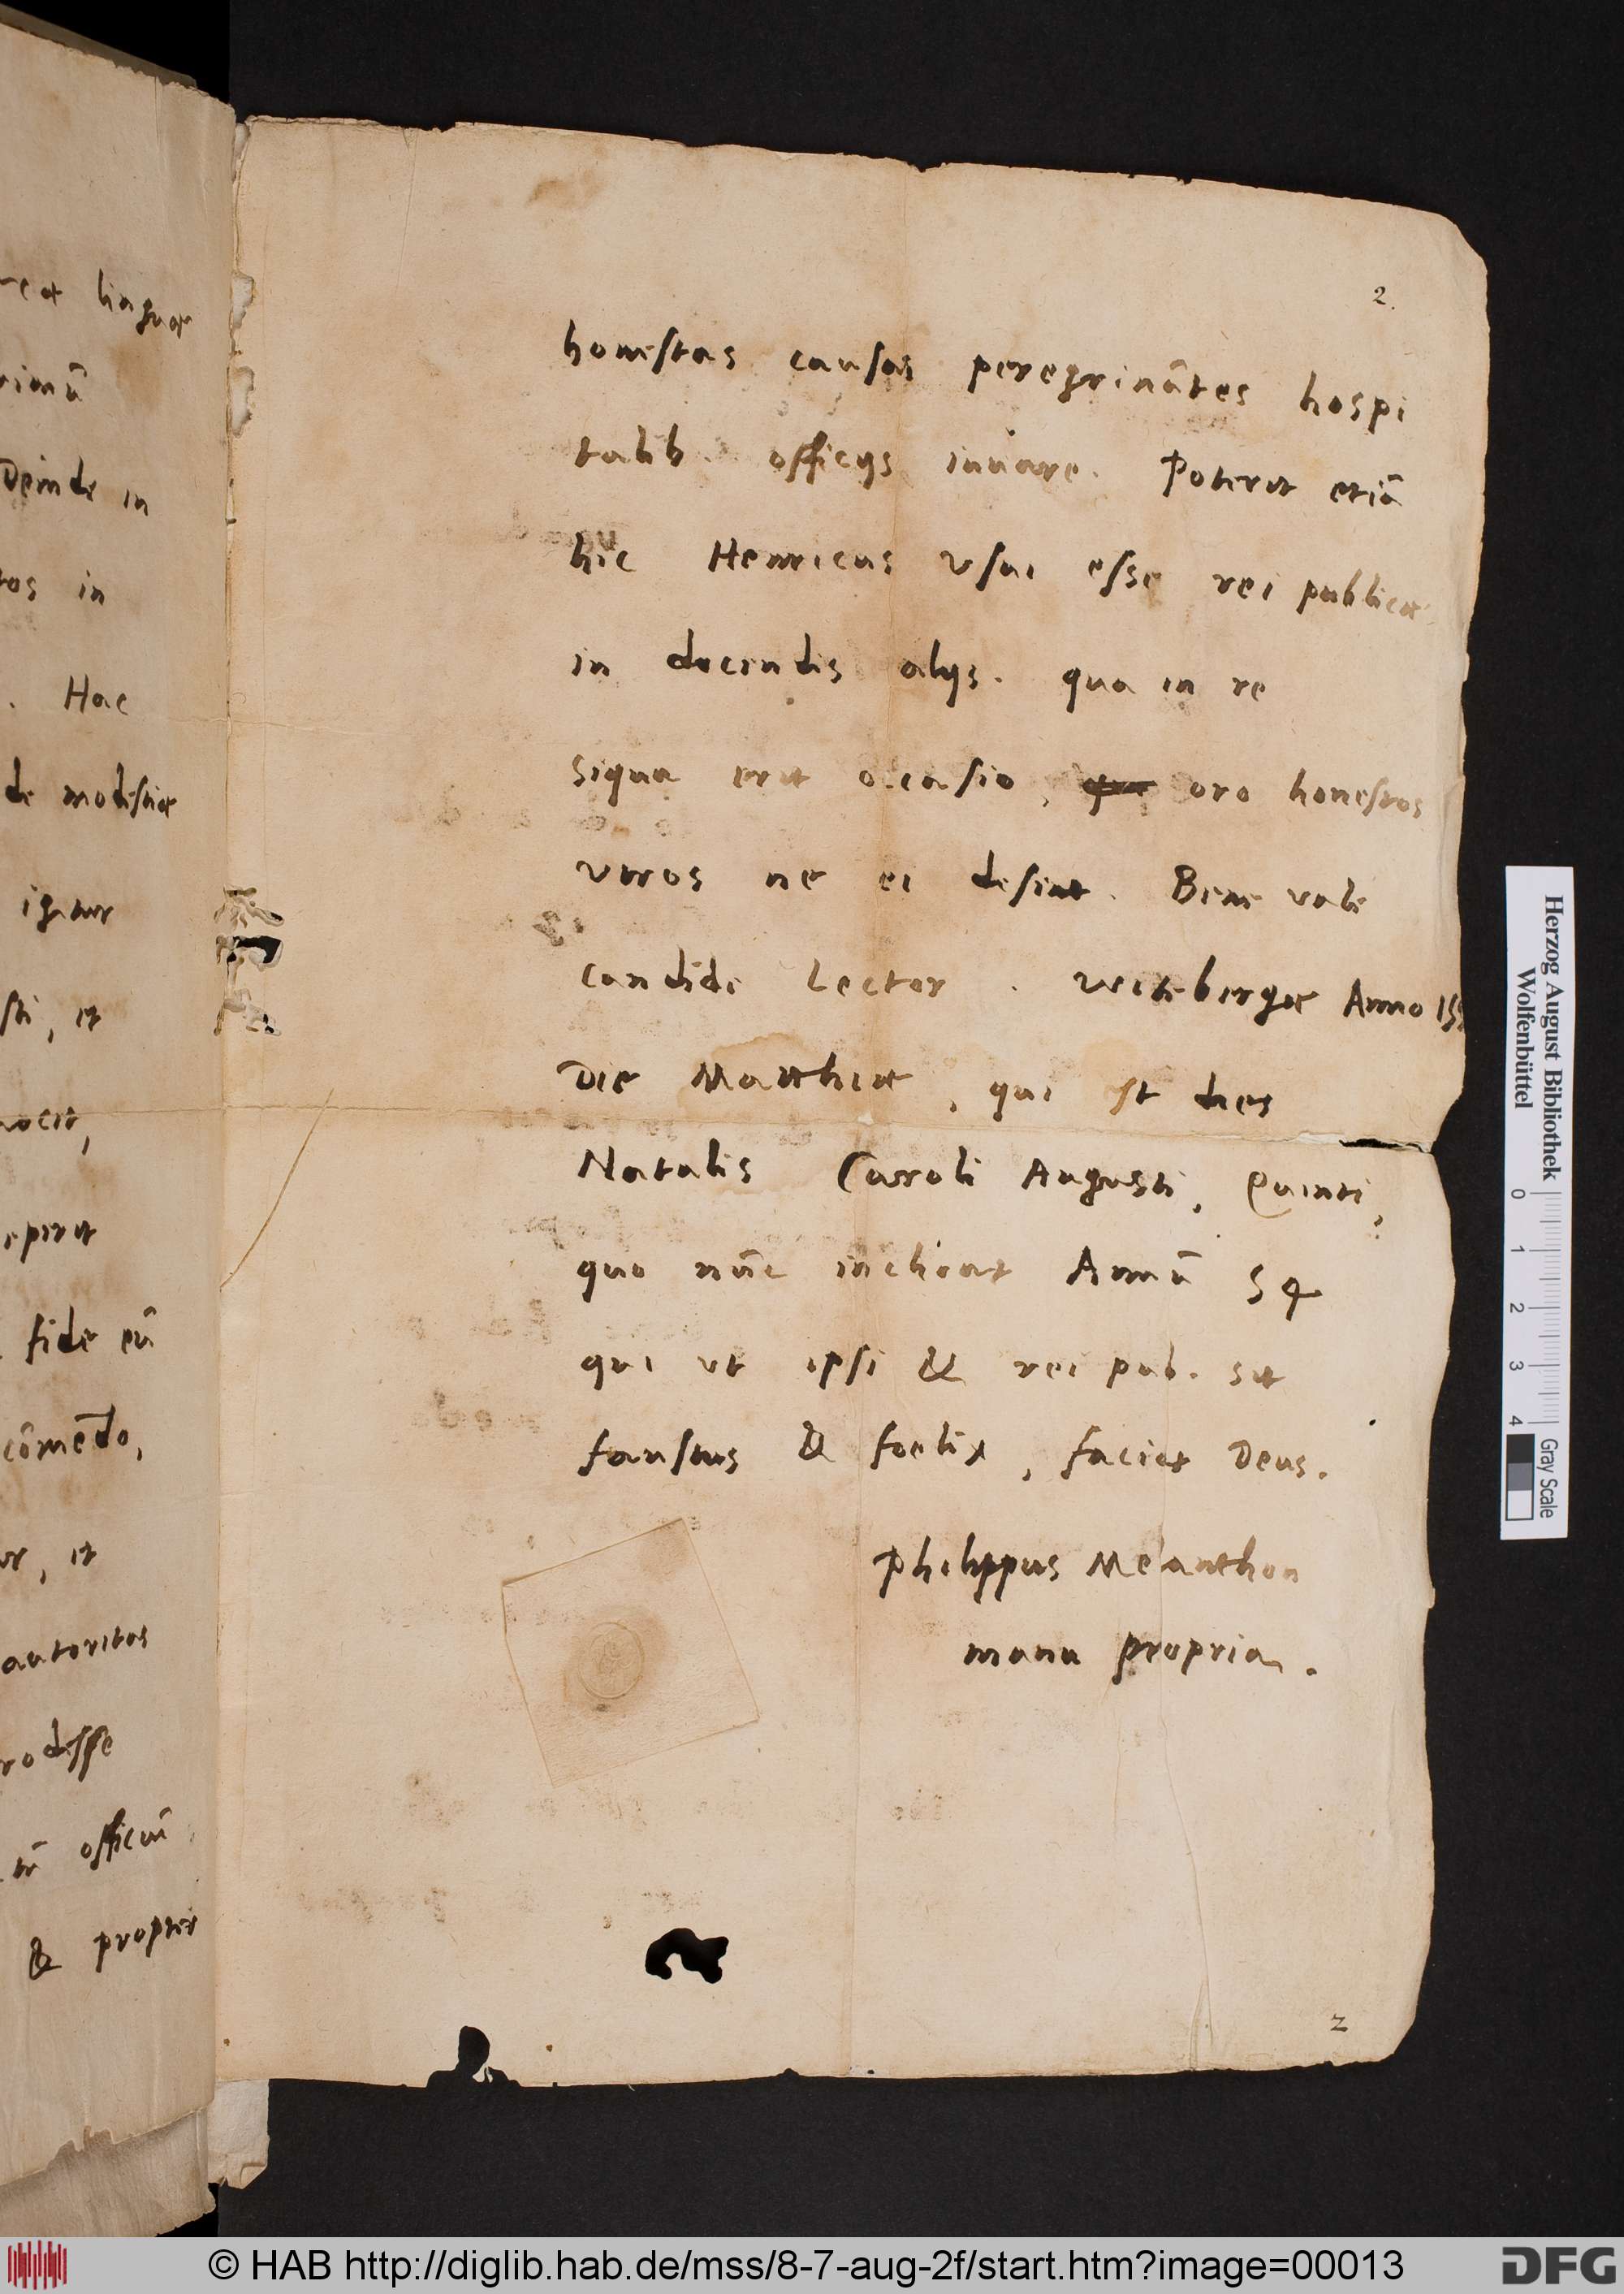 rcæ linguæ
rimū
Deinde in
tos in
. Hac
de modestiæ
igitur
sti, et
vocit,
eperit
. fide eū
cōmēdo,
ur, et
autoritas
rodesse
officiū
& propter
2.
honestas causas peregrināntes hospi
talib. officijs iuuare. Poterit etiā
hic Henricus vsui esse rei publicæ
in docendis alijs. qua in re
siqua erit occasio, oro honestos
viros ne ei desint. Bene vale
candide Lector. Witebergæ Anno 155
Die Matthiæ, qui est dies
Natalis Caroli Augusti, Quinti,
quo nūc inchoat Annū 54
qui vt ipsi & rei pub. sit
faustus & foelix, faciat Deus.
Philippus Melanthon
manu propria.
2
Herzog August Bibliothek
Wolfenbüttel
0 1 2 3 4
Gray Scale
© HAB http://diglib.hab.de/mss/8-7-aug-2f/start.htm?image=00013
DFG